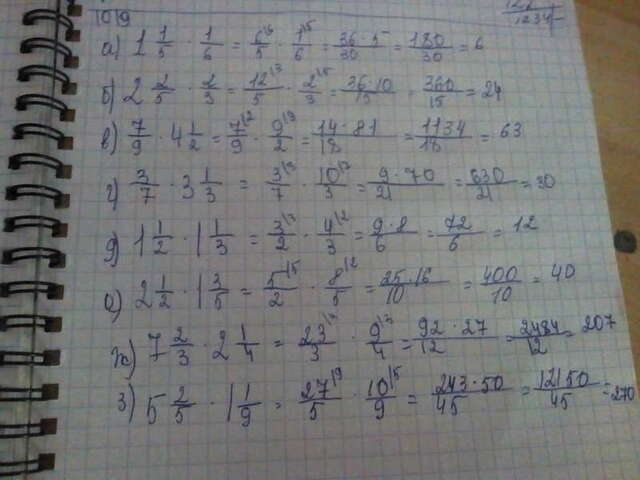 1019
1234
а) 1 1/5 · 1/6 = 6/5^6 · 1/6^5 = 36·5/30 = 180/30 = 6
б) 2 2/5 · 2/3 = 12/5^3 · 2/3^5 = 36·10/15 = 360/15 = 24
в) 7/9 · 4 1/2 = 7/9^2 · 9/2^9 = 14·81/18 = 1134/18 = 63
г) 3/7 · 3 1/3 = 3/7^3 · 10/3^7 = 9·70/21 = 630/21 = 30
д) 1 1/2 · 1 1/3 = 3/2^3 · 4/3^2 = 9·8/6 = 72/6 = 12
е) 2 1/2 · 1 3/5 = 5/2^5 · 8/5^2 = 25·16/10 = 400/10 = 40
ж) 7 2/3 · 2 1/4 = 23/3^4 · 9/4^3 = 92·27/12 = 2484/12 = 207
з) 5 2/5 · 1 1/9 = 27/5^9 · 10/9^5 = 243·50/45 = 12150/45 = 270